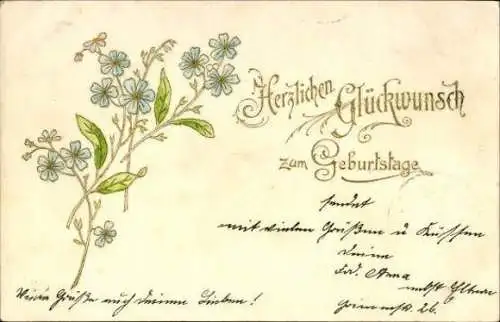 Herzlichen
Glückwunsch
zum Geburtstage
sendet
mit vielen Grüßen u Küssen
Deine
Anna
nebst Eltern
Viele Grüße auch deinen Lieben!
26.